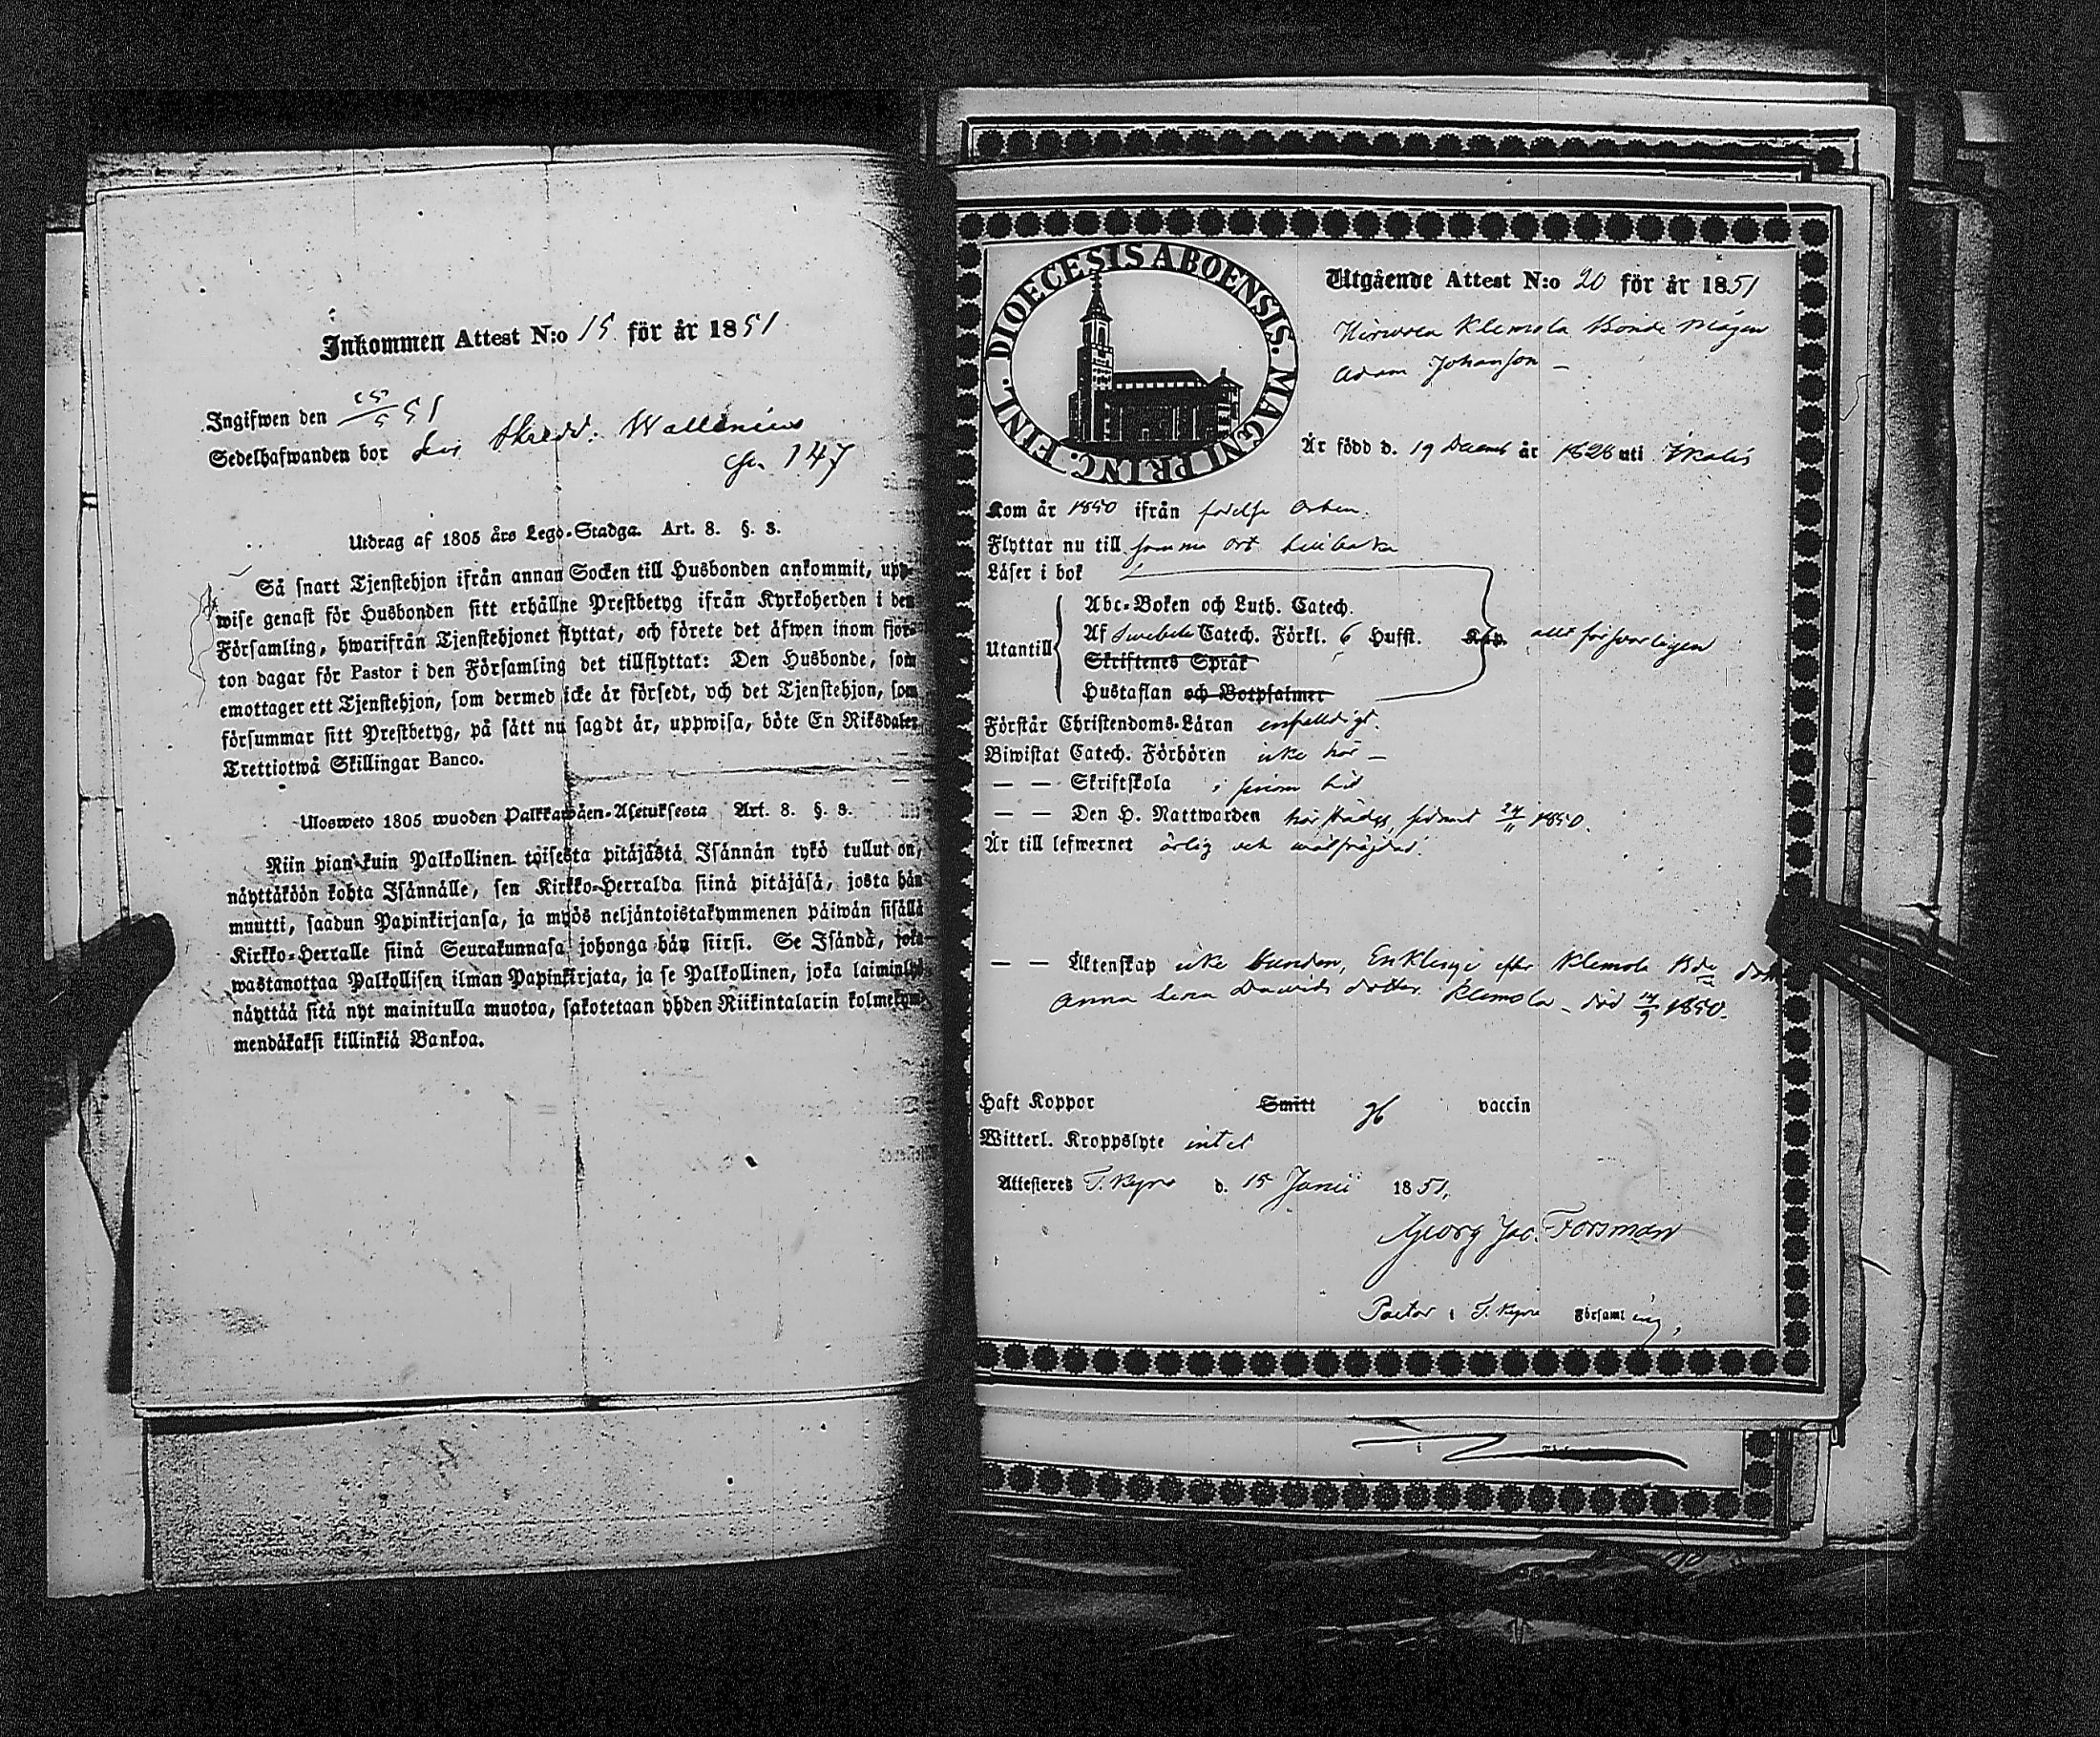 Inkommen Attest N:o 15 för år 1851
Ingifwen den 51
Sedelhafwanden bor hos Skredd. Wallenius
147
Utdrag af 1805 års Lego-Stadga. Art. 8. §. 8.
Så snart Tjenstehjon ifrån annan Socken till Husbonden ankommit, upp-
wise genast för Husbonden sitt erhållne Prestbetyg ifrån Kyrkoherden i den
Församling, hwarifrån Tjenstehjonet flyttat, och förete det äfwen inom fjor-
ton dagar för Pastor i den Församling det tillflyttat: Den Husbonde, som
emottager ett Tjenstehjon, som dermed icke är försedt, och det Tjenstehjon, som
försummar sitt Prestbetyg, på sätt nu sagdt är, uppwisa, böte En Riksdaler
Trettiotwå Skillingar Banco.
Ulosweto 1805 wuoden Palkkawäen-Asetuksesta Art. 8. §. 8.
Niin pian kuin Palkollinen toisesta pitäjästä Isännän tykö tullut on,
näyttäköön kohta Isännälle, sen Kirkko-Herralda siinä pitäjäsä, josta hän
muutti, saadun Papinkirjansa, ja myös neljäntoistakymmenen päiwän sisällä
Kirkko-Herralle siinä Seurakunnasa johonga hän siirsi. Se Isändä, joka
wastanottaa Palkollisen ilman Papinkirjata, ja se Palkollinen, joka laiminlyö
näyttää sitä nyt mainitulla muotoa, sakotetaan yhden Riikintalarin kolmekym-
mendäkaksi killinkiä Bankoa.
DIOECESIS ABOENSIS. MAGNI PRINC. FINL.
Utgående Attest N:o 20 för år 1851
Klemola Bonde Mågen
Adam Johansson
Är född d. 19 Decemb år 1828 uti Ikalis
Kom år 1850 ifrån födelse Orten.
Flyttar nu till samma Ort tillbaka
Läser i bok
Abc-Boken och Luth. Catech.
Utantill Af Swebelii Catech. Förkl. 6 Hufst. Kap. allt försvarligen
Skriftenes Språk
Hustaflan och Botpsalmer
Förstår Christendoms-Läran enfalldigt.
Biwistat Catech. Förhören icke här
— — Skriftskola
— — Den H. Nattwarden härstädes, sidmt 24/11 1850.
Är till lefwernet ärlig och wälfräjdad.
— — Äktenskap icke bunden, Enklinge efter Klemola Bde
Anna Lisa Davids dotter Klemola död 14/9 1850.
Haft Koppor Smitt vaccin
Witterl. Kroppslyte intet
Attesteres T. Kyro d. 15 Junii 1851.
Georg Jac. Forsman
Pastor i T. Kyro Församling,